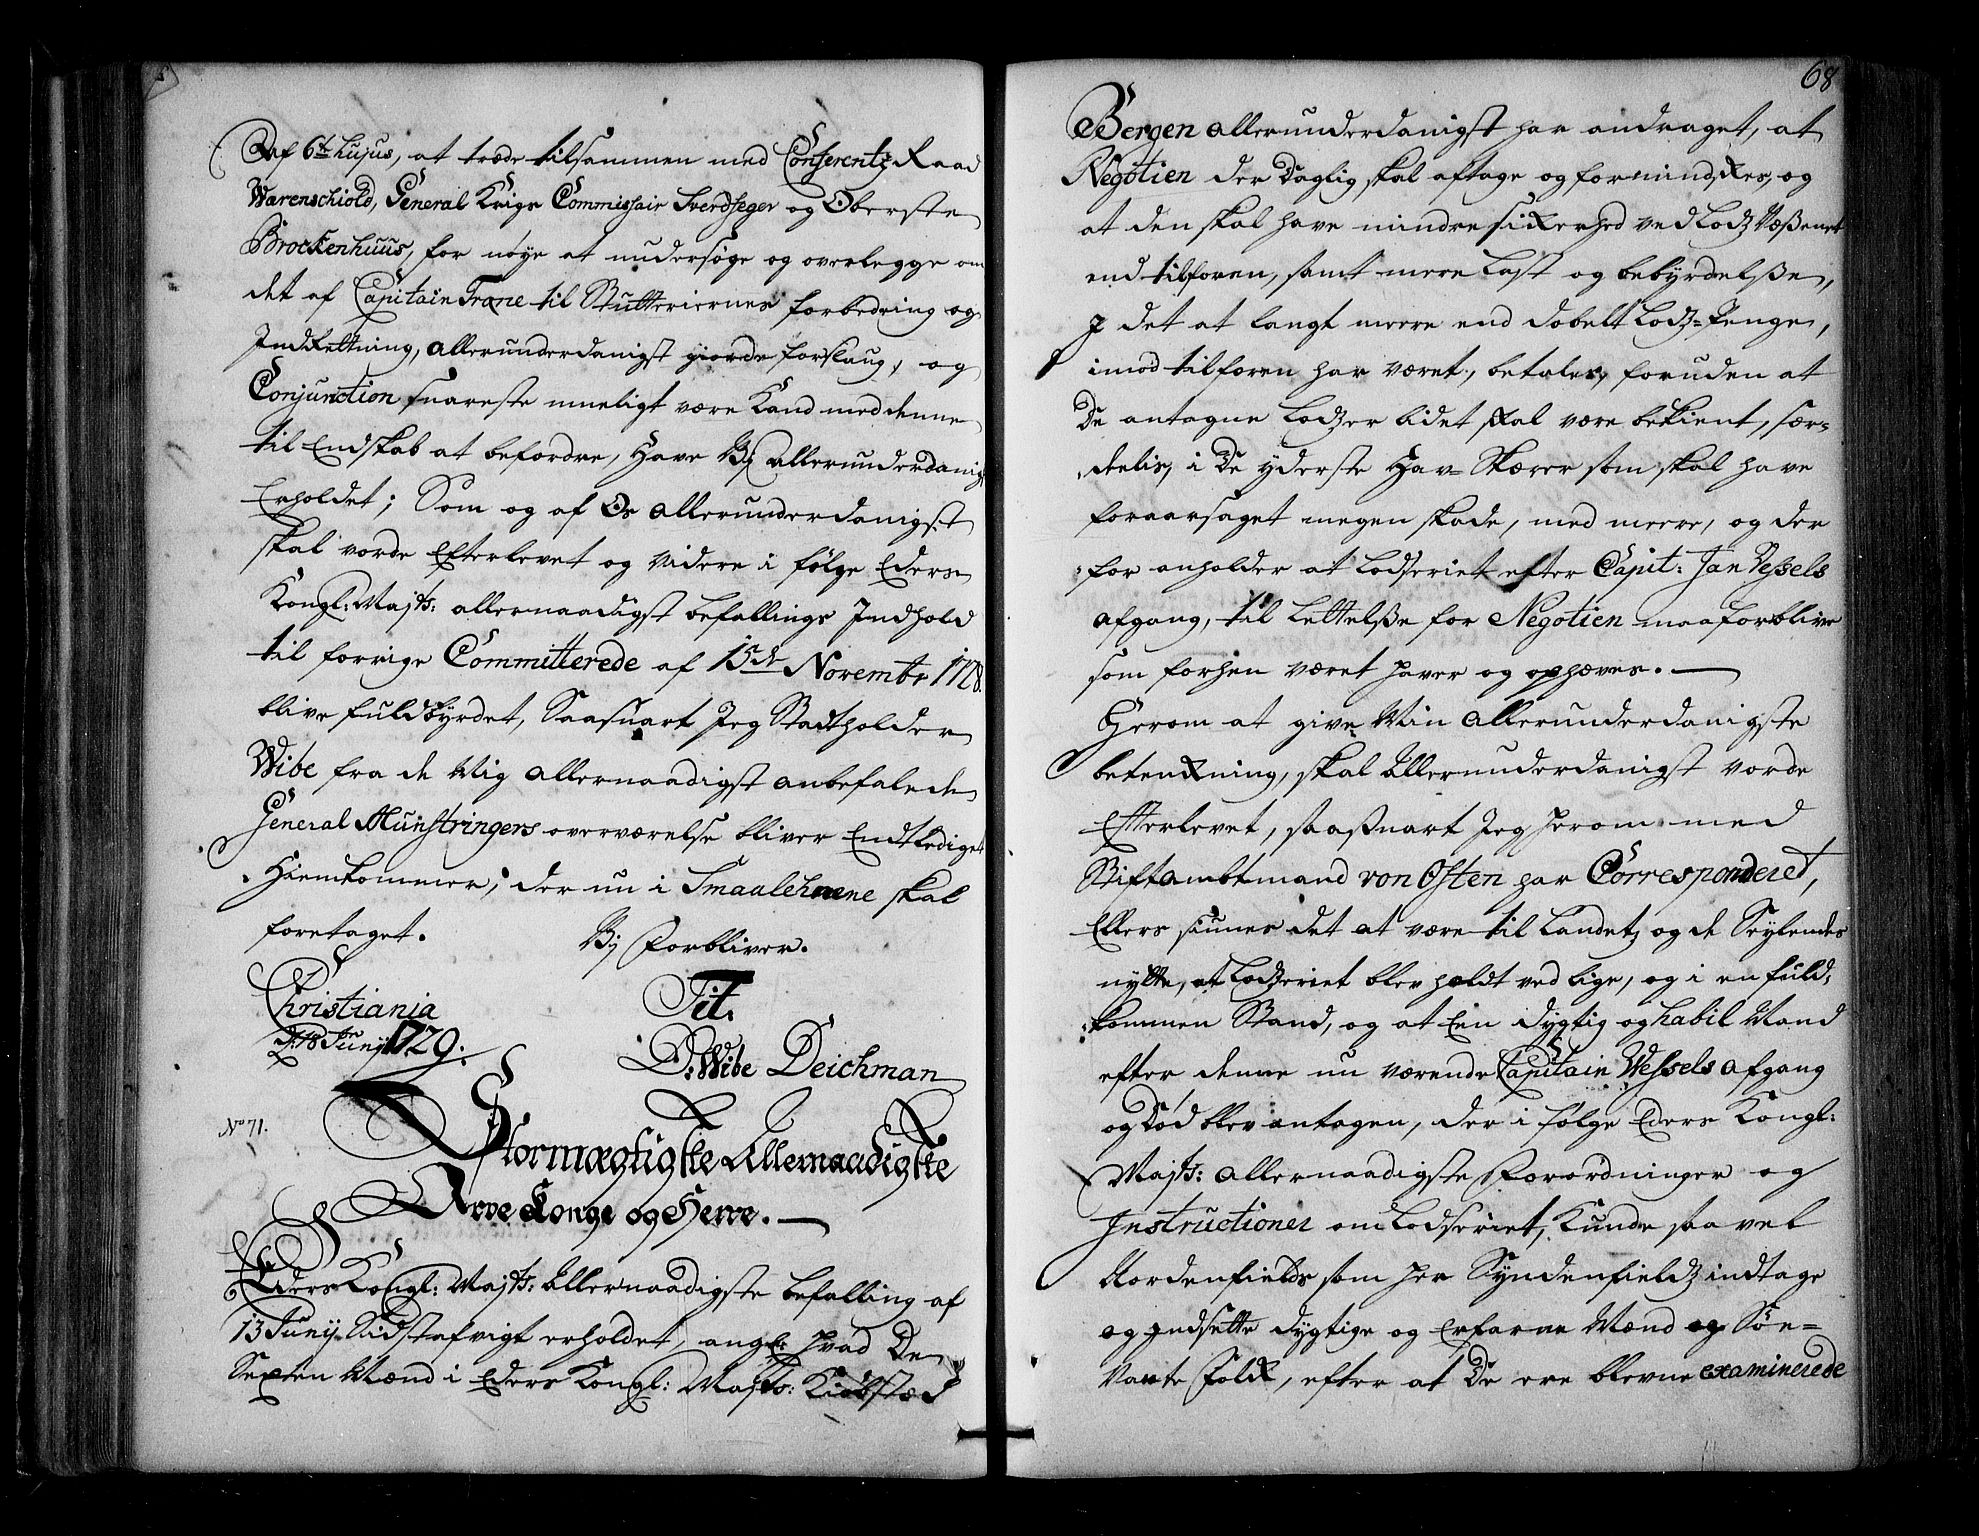 af 6te hujus, at træde tilsammen med Conferentz Raad
Warenschiold, General Krigs Commissair Sverdfeger og Oberste
Brockenhuus, for nøye at undersøge og overlegge om
det af Capitain Trane til Stutteriernes forbedring og
Indrettning, allerunderdanigst giorde forslaug, og
Conjunction snareste mueligt være kand med denne
til Endskab at befordre, have Vj allerunderdanigst
Erholdet; Som og af Os allerunderdanigst
skal vorde Efterlevet og videre i følge Eders
Kongl: Majts: allernaadigst befallings Indhold
til forrige Committerede af 15de Novembr 1728.
blive fuldbyrdet, Saasnart Jeg Stadtholder
Wibe fra de Mig allernaadigst anbefalede
General Munstringers overværelse bliver Endtlediget
hiemkommer, der nu i Smaalehnene skal
foretaget. Vj Forbliver.
Christiania Tit.
d: 18 Junij 1729. D: Wibe Deichman
No 71.
Stormægtigste Allernaadigste
Arve Konge og Herre.
Eders Kongl: Majts: Allernaadigste befalling af
13 Junij Sidstafvigt erholdet, ang: hvad De
Sexten Mænd i Eders Kongl: Majts: Kiøbstæd
68
Bergen allerunderdanigst har andraget, at
Negotien der daglig skal aftage og formindskes, og
at den skal have mindre sikerhed ved Lodz Væßenet
end tilforen, samt mere Last og bebyrdelße,
I det at langt meere end dobelt Lodz-Penge,
imod tilforen har været, betales, foruden at
De antagne Lodzer lidet skal være bekient, sær-
deelis, i De yderste Hav-Skærer som skal have
foraarsaget megen skade, med meere, og der
for anholder at Lodseriet efter Capit: Jan Vessels
afgang, til Lettelße for Negotien maa forblive
som forhen været haver og ophæves.
Herom at give Min allerunderdanigste
betenkning, skal Allerunderdanigst vorde
Efterlevet, saaßnart Jeg herom med
Stiftambtmand von Osten har Corresponderet,
Ellers siunes det at være til Landetz og de Seylendes
nytte, at Lodzeriet blev holdt ved lige, og i en fuld-
kommen Stand, og at Een dygtig og habil Mand
efter denne nu værende Capitain Wessels afgang
og Død blev antagen, der i følge Eders Kongl:
Majts: allernaadigste Forordninger og
Instructioner om Lodseriet, Kunde saa vel
Nordenfields som her Syndenfieldz indtage
og Indsette dygtige og Erfarne Mænd og Søe-
Vante Folk, efter at De ere blevne examinerede